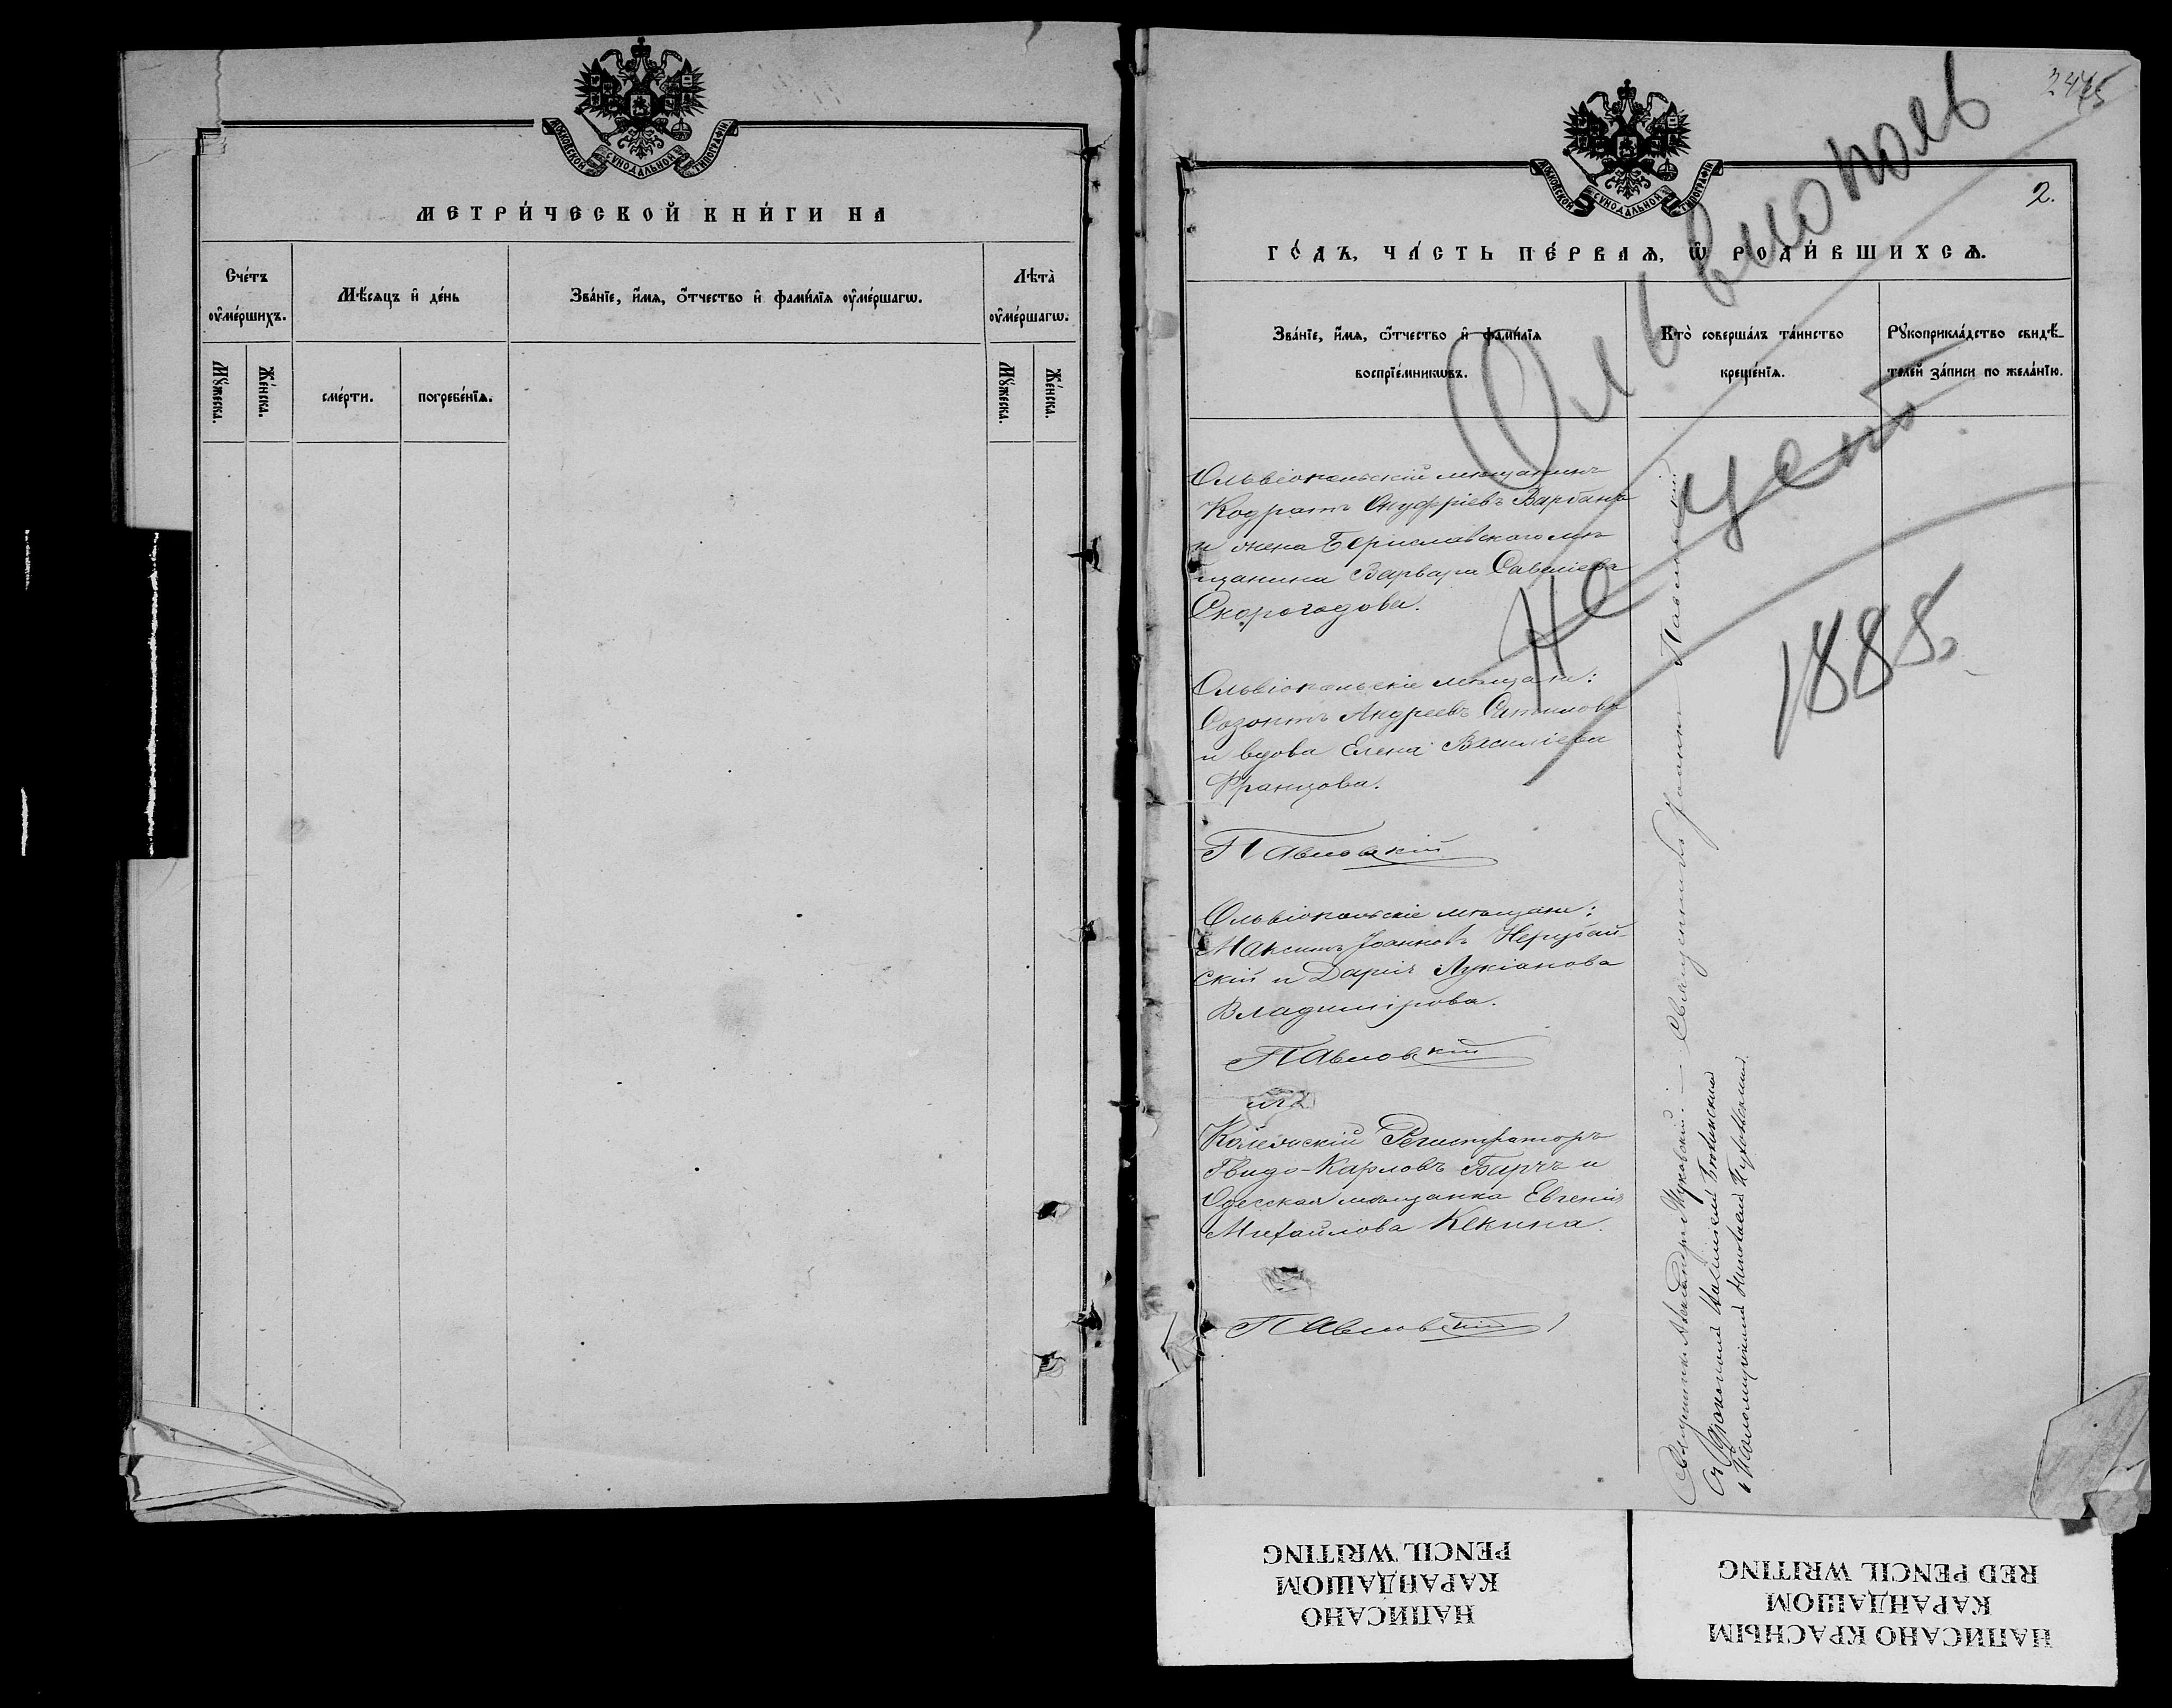 МОСКОВСКОЙ СѴНОДАЛЬНОЙ ТИПОГРАФІИ
МЕТРИ́ЧЕСКОЙ КНИ́ГИ НА
Сче́тъ
оу҆ме́ршихъ.
Мѣ́сяцъ и҆ де́нь
Зва́нїе, и҆́мѧ, ѻ҆́тчество и҆ фами́лїѧ оу҆ме́ршагѡ.
Лѣта̀
оу҆ме́ршагѡ.
Мꙋ́жеска.
Же́нска.
сме́рти.
погребе́нїѧ.
Мꙋ́жеска.
Же́нска.
2.
МОСКОВСКОЙ СѴНОДАЛЬНОЙ ТИПОГРАФІИ
ГО́ДЪ, ЧА́СТЬ ПЕ́РВАѦ, Ѽ РОДИ́ВШИХСѦ.
Зва́нїе, и҆́мѧ, ѻ҆́тчество и҆ фами́лїѧ
воспрїе́мникѡвъ.
Кто̀ соверша́лъ та́инство
креще́нїѧ.
Рꙋкоприкла́дство свидѣ́-
телей за́писи по жела́нїю.
Ольвиополь
Не
1885
Ольвіопольскій мѣщанинъ
Кодратъ Онуфріевъ Варбанъ
и жена Бериславскаго мѣ-
щанина Варвара Савеліева
Скорогодова.
Ольвіопольскіе мѣщане:
Созонтъ Андреевъ
и вдова Елена Василіева
Францова.
Павловскій
Ольвіопольскіе мѣщане:
Максимъ Іоанновъ Нерубай-
скій и Дарія Лукіанова
Владимірова.
Павловскій
Колежскій Регистраторъ
Гвидо-Карловъ Барчъ и
Одесская мѣщанка Евгенія
Михайлова Кекина.
Павловскій
Священникъ Александръ Жуковскій. — Священникъ Іоаннъ Павловскій
Съ Діакономъ
и Псаломщикомъ Николаемъ
НАПИСАНО
КАРАНДАШОМ
PENCIL WRITING
НАПИСАНО КРАСНЫМ
КАРАНДАШОМ
RED PENCIL WRITING